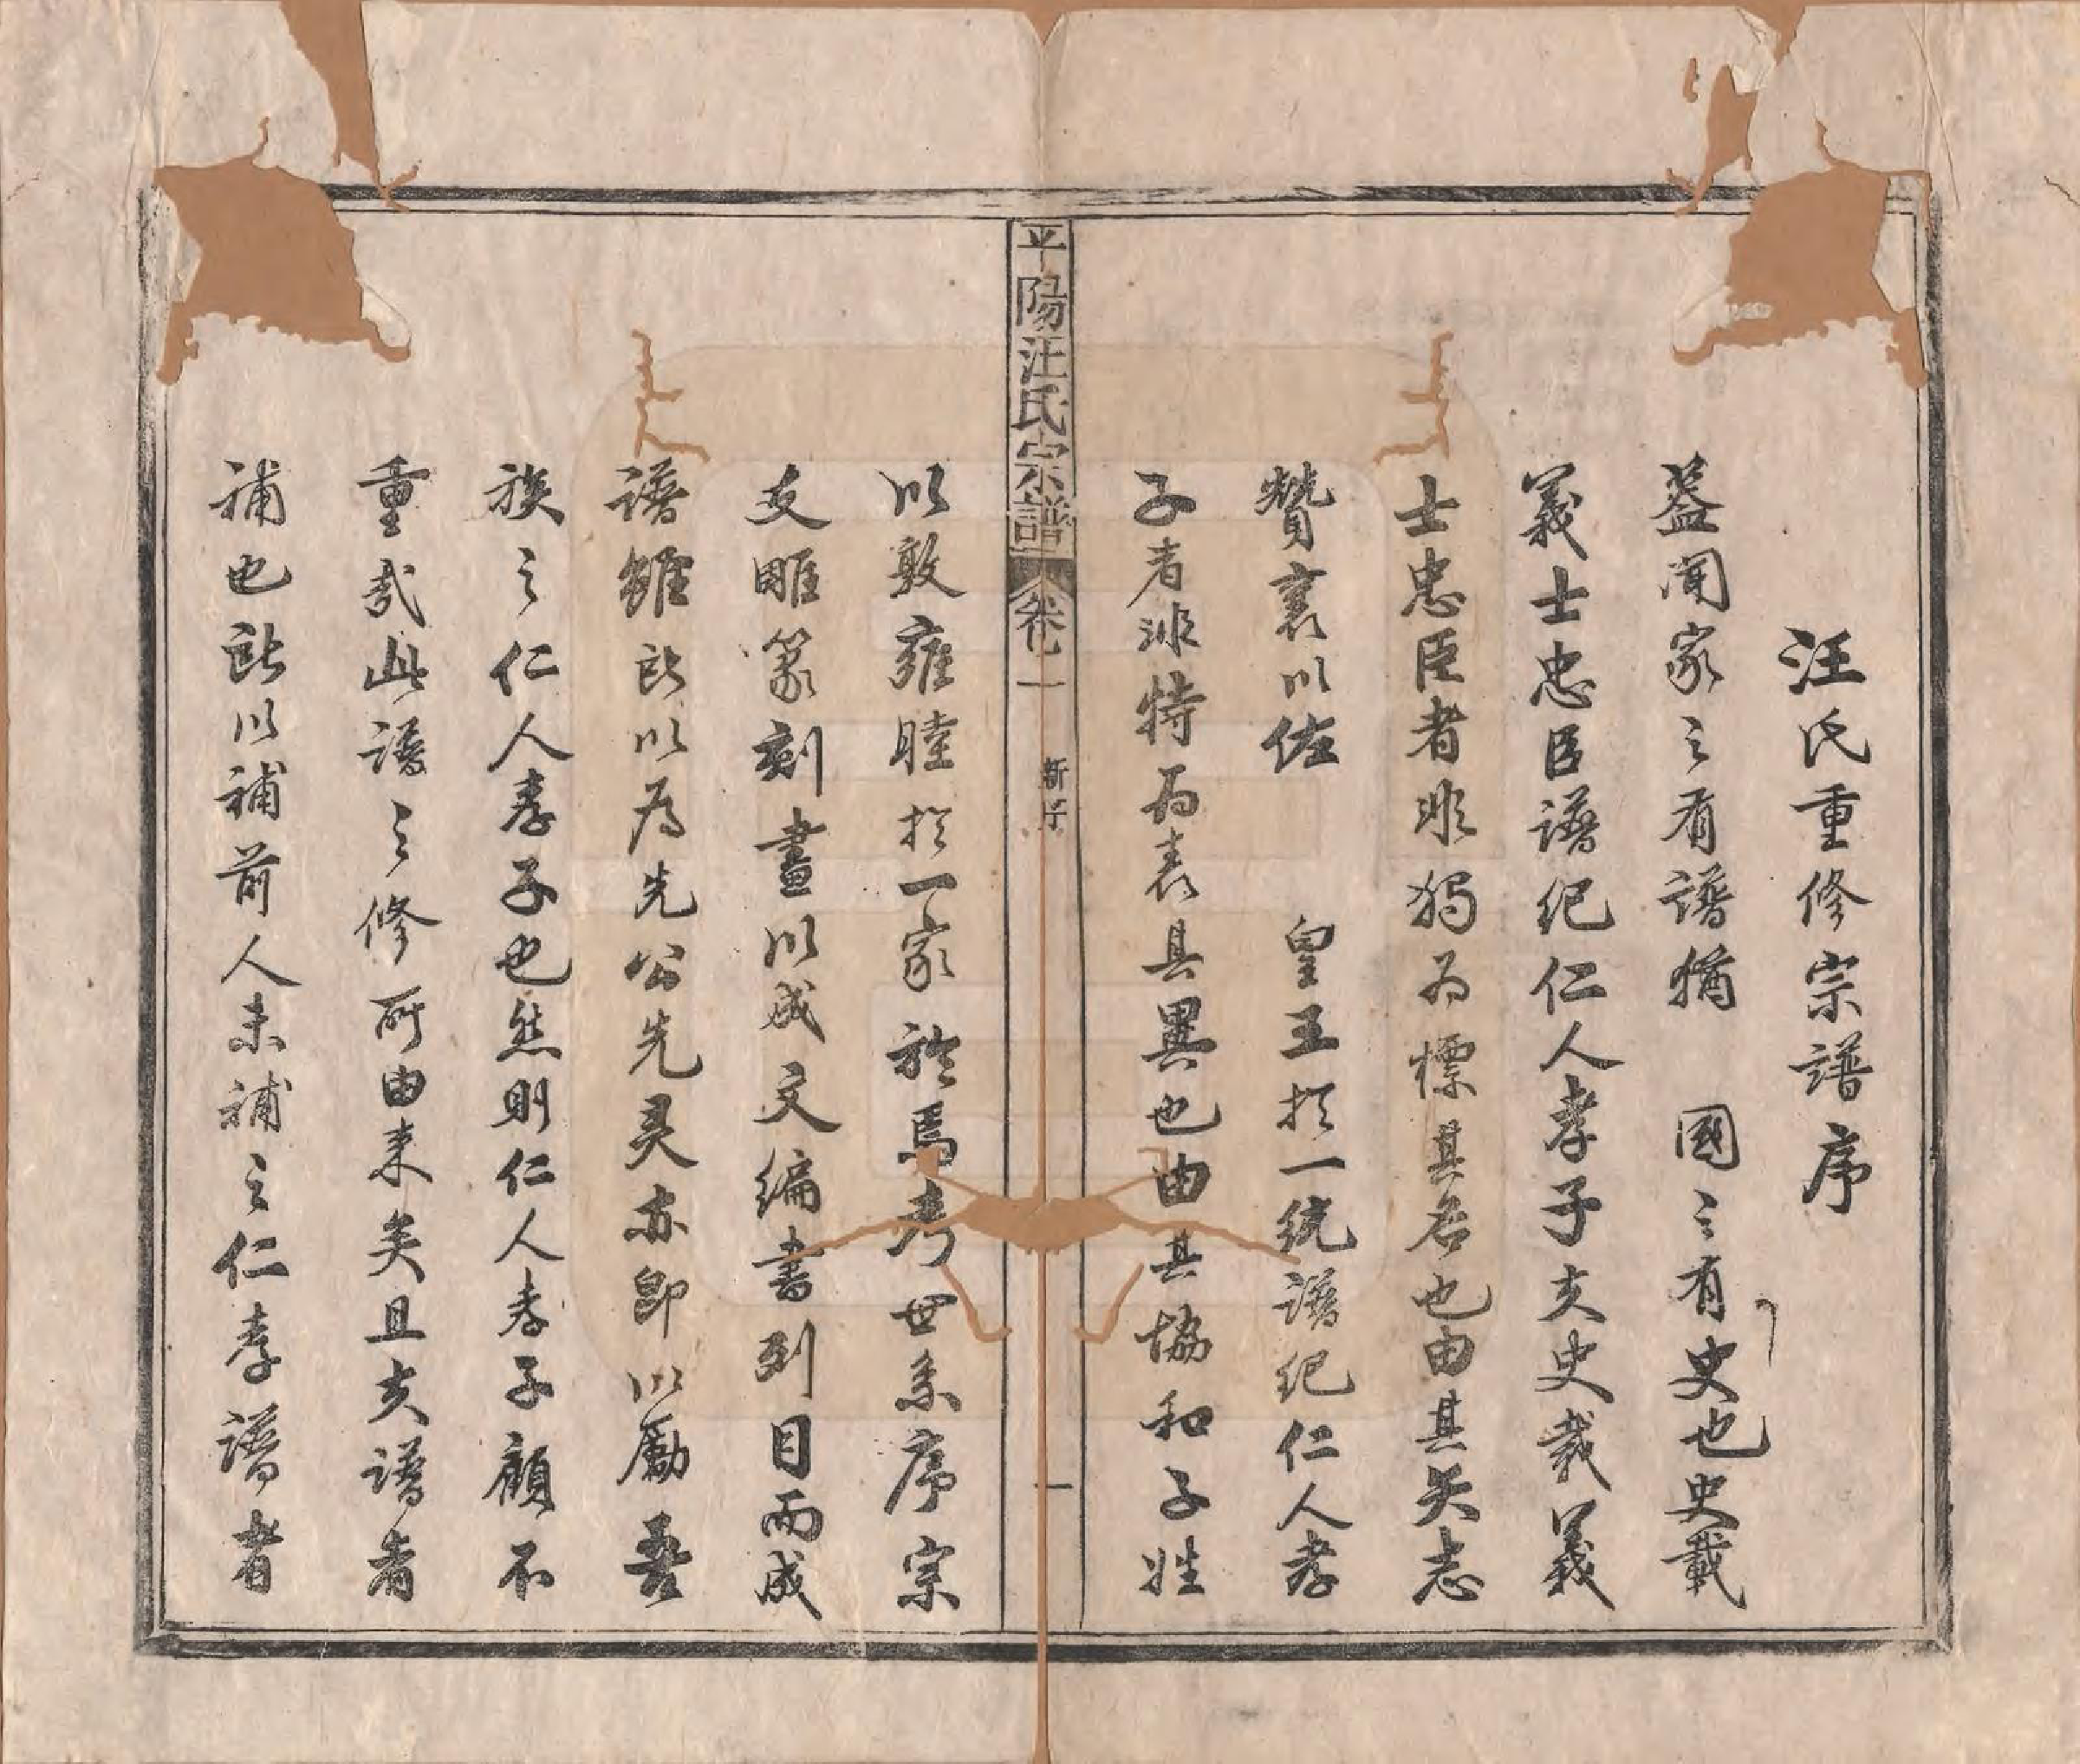 汪氏重修宗譜序
葢聞家之有譜猶 國之有史也史載
義士忠臣譜紀仁人孝子夫史載義
士忠臣者非獨為標其名也由其矢志
贊襄以佐 皇王於一統譜紀仁人孝
子者非特為表其異也由其協和子姓
平陽汪氏宗譜 卷一 新序 一
以敦雍睦於一家於焉考世系序宗
支雕篆刻畫以成文編書列目而成
譜雖所以為先公先灵亦即以勵吾
族之仁人孝子也然則仁人孝子顧不
重哉此譜之修所由来矣且夫譜者
補也所以補前人未補之仁孝譜者